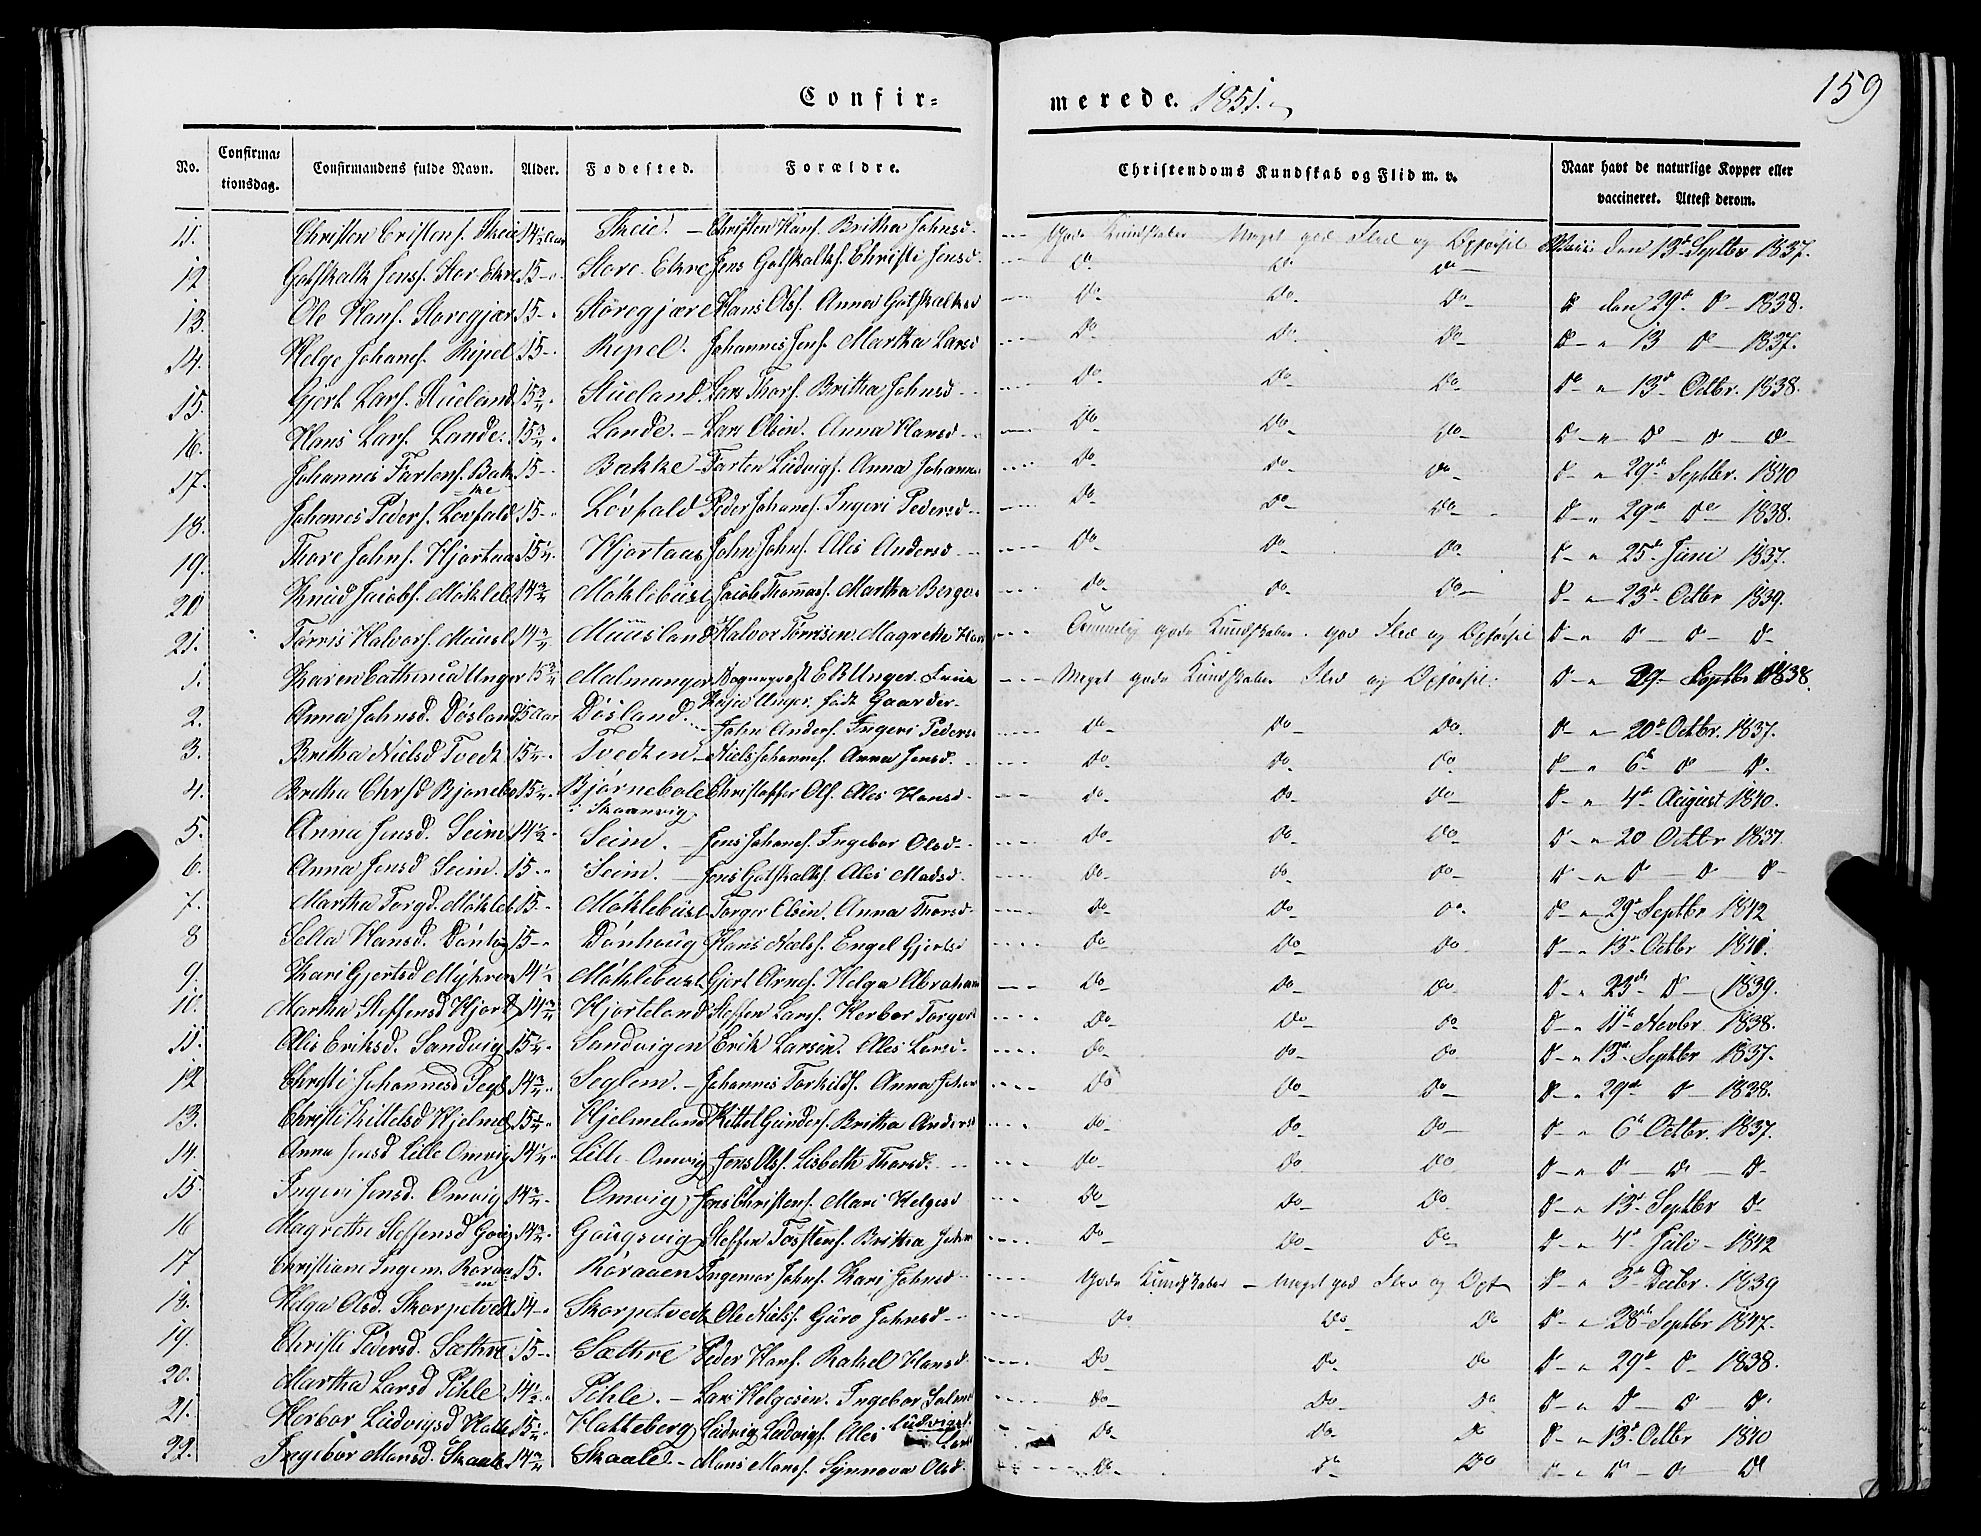 Confir=
merede. 1851.
159
No.
Confirma=
tionsdag.
Confirmandens fulde Navn.
Alder.
Fødested.
Forældre.
Christendoms Kundskab og Flid m. v.
Naar havt de naturlige Kopper eller
vaccineret. Attest derom.
11. Christen Cristens. Skeie 14½ Aar Skeie. – Christen Hans. Britha Johnsd. Gode Kundskaber Meget god Flid og Opførsel den 13d Septbr 1837.
12 Gotskalk Jens. Stor Ekre 15 – " Store Ekre Jens Gotskalks. Christi Jensd. – Do Do Do –
13. Ole Hans. Storegjær 15 – " Storegjære Hans Ols. Anna Gotskalksd – Do – Do – Do – den 29de D – 1838.
14. Helge Johans. Ripel 15 – " Ripel. Johannes Jens. Martha Larsd – Do – Do – Do – D – " 13 D – 1837.
15. Gjert Lars. Stueland 15¾ " Stueland. Lars Thors. Britha Johnsd – Do – Do – Do – Do " – 13d Octbr. 1838.
16. Hans Lars. Lande. 15¾ " Lande. – Lars Olsen. Anna Hansd – Do – Do – Do – D – " – D – D – D –
17. Johannes Tartens. Bakke 15 – Bakke – Tarten Ludvigs. Anna Johanne Do – Do – Do – D – " 29de Septbr. 1840
18. Johannes Peders. Løvfald 15 – " Løvfald Peder Johans. Ingeri Pedersd – Do – Do – Do – D – " 29de Do – 1838.
19. Thore Johns. Hjortaas 15¼ " Hjortaas John Johns. Ales Andersd – Do – Do – Do – D – " 25de Juni 1837.
20 Knud Jacobs. Møkleb 14¾ Møklebust Jacob Thomas. Martha Berge Do – Do – Do – D – " – 23de Octbr 1839.
21. Tørris Halvors. Muusl 14¾ Muusland Halvor Tørrisen Magrethe Hans gode Kundskaber. god Flid og Opførsel D – " D – D – D –
1. Karen Cathrina Unger 15¾ Malmanger Sognepræst E R Unger. Meget gode Kundskaber Flid og Opførsel. D – " 29 – Septbr 1838.
Kaja Unger. født Gaarder
2. Anna Johnsd. Døsland 15 Aar Døsland. John Anders. Ingeri Peders Do – Do – Do. D – " – 20d Octbr. 1837.
3. Britha Nielsd Tvedt 15¼ – Tvedten – Niels Johannes. Anna Jensd. – Do – Do – Do D – " – 6d – D – D.
4. Britha Chrsd Bjørnebo 15¼ – Bjørnebole Christoffer Ols. Ales Hansd – Do – Do – Do – D – " 4d August 1840.
i Skaanvig
5. Anna Jensd. Seim 14½ – Seim. – Jens Johans. Ingebor Olsd – Do – Do – Do – D – " 20 Octbr 1837.
6. Anna Jensd Seim. 15 – " Seim. – Jens Gotskalks. Ales Madsd. Do – Do – Do – D – " D – D – D –
7. Martha Torgd. Møkleb 15 – Møklebust Torger Olsen. Anna Thorsd – Do – Do – Do. D – " 29d Septbr 1842
8 Sella Hansd. 15 – " Dønhaug Hans Nils. Engel Gjertsd Do – Do – Do – D – " 13d Octbr 1841.
9. Kari Gjertsd 14½ Møklebust Gjert Arnes. Helga Abraham Do – Do – Do – D – " 23de – D – 1839.
10. Martha Steffensd Hjort 14¾ Hjorteland Steffen Lars. Herbor Torgers Do – Do – Do – D – " 11d Novbr. 1838.
11. Ales Eriksd. Sandvig 15¼ – Sandvigen Erik Larsen. Ales Larsd. Do – Do – Do – D – " 13d. Septbr 1837.
12 Christi Johannesd Segl 14¾ – Seglem. – Johannes Torkilds. Anna Johan Do – Do – Do – D – " – 29de D – 1838.
13. Christi Kittelsd Hjelmel 15½ – Hjelmeland Kittel Gunders. Britha Anders Do – Do – Do – D – " 6d Octbr. 1837.
14. Anna Jensd Lille Omvig 14¼ " Lille Omvig Jens Ols. Lisbeth Thorsd. Do – Do – Do – D – " D – D – D –
15. Ingeri Jensd. Omvig 14¾ – Omvig Jens Christens. Mari Helgesd Do – Do – Do – D – " 13d Septbr D –
16 Magrethe Steffensd Goug 14¾ – Gougsvig Steffen Torstens. Britha John Do – Do – Do – D – " 4d Juli – 1842
17 Christiane Ingem. Røraa 15. Røraaen Ingemar Johns. Kari Johnsd – Gode Kundskaber – Meget god Flid og Opf D – " 3d Decbr. 1839
18. Helga Olsd. Skorpetvedt 14 – " Skorpetvedt Ole Niels. Guro Johnsd – Do Do – Do D – " 28de Septbr 1847.
19. Christi Pedersd. Sæthre 15 – " Sæthre Peder Hans. Rakel Hansd. Do – Do – Do D – " 29d D – 1838.
20. Martha Larsd Pøhle 14½ " Pøhle. – Lars Helgesen. Ingebor Salm Do – Do – Do D – " D – D – D.
21. Herbor Ludvigsd Hatte 15¼ – Hatteberg Ludvig Ludvigs. Ales Do – Do – Do D – " 13d Octbr 1840
22. Ingebor Monsd. Skaale 14¾ Skaale. – Mons Mons. Synnøva Olsd. Do – Do – Do D – " D – D – D